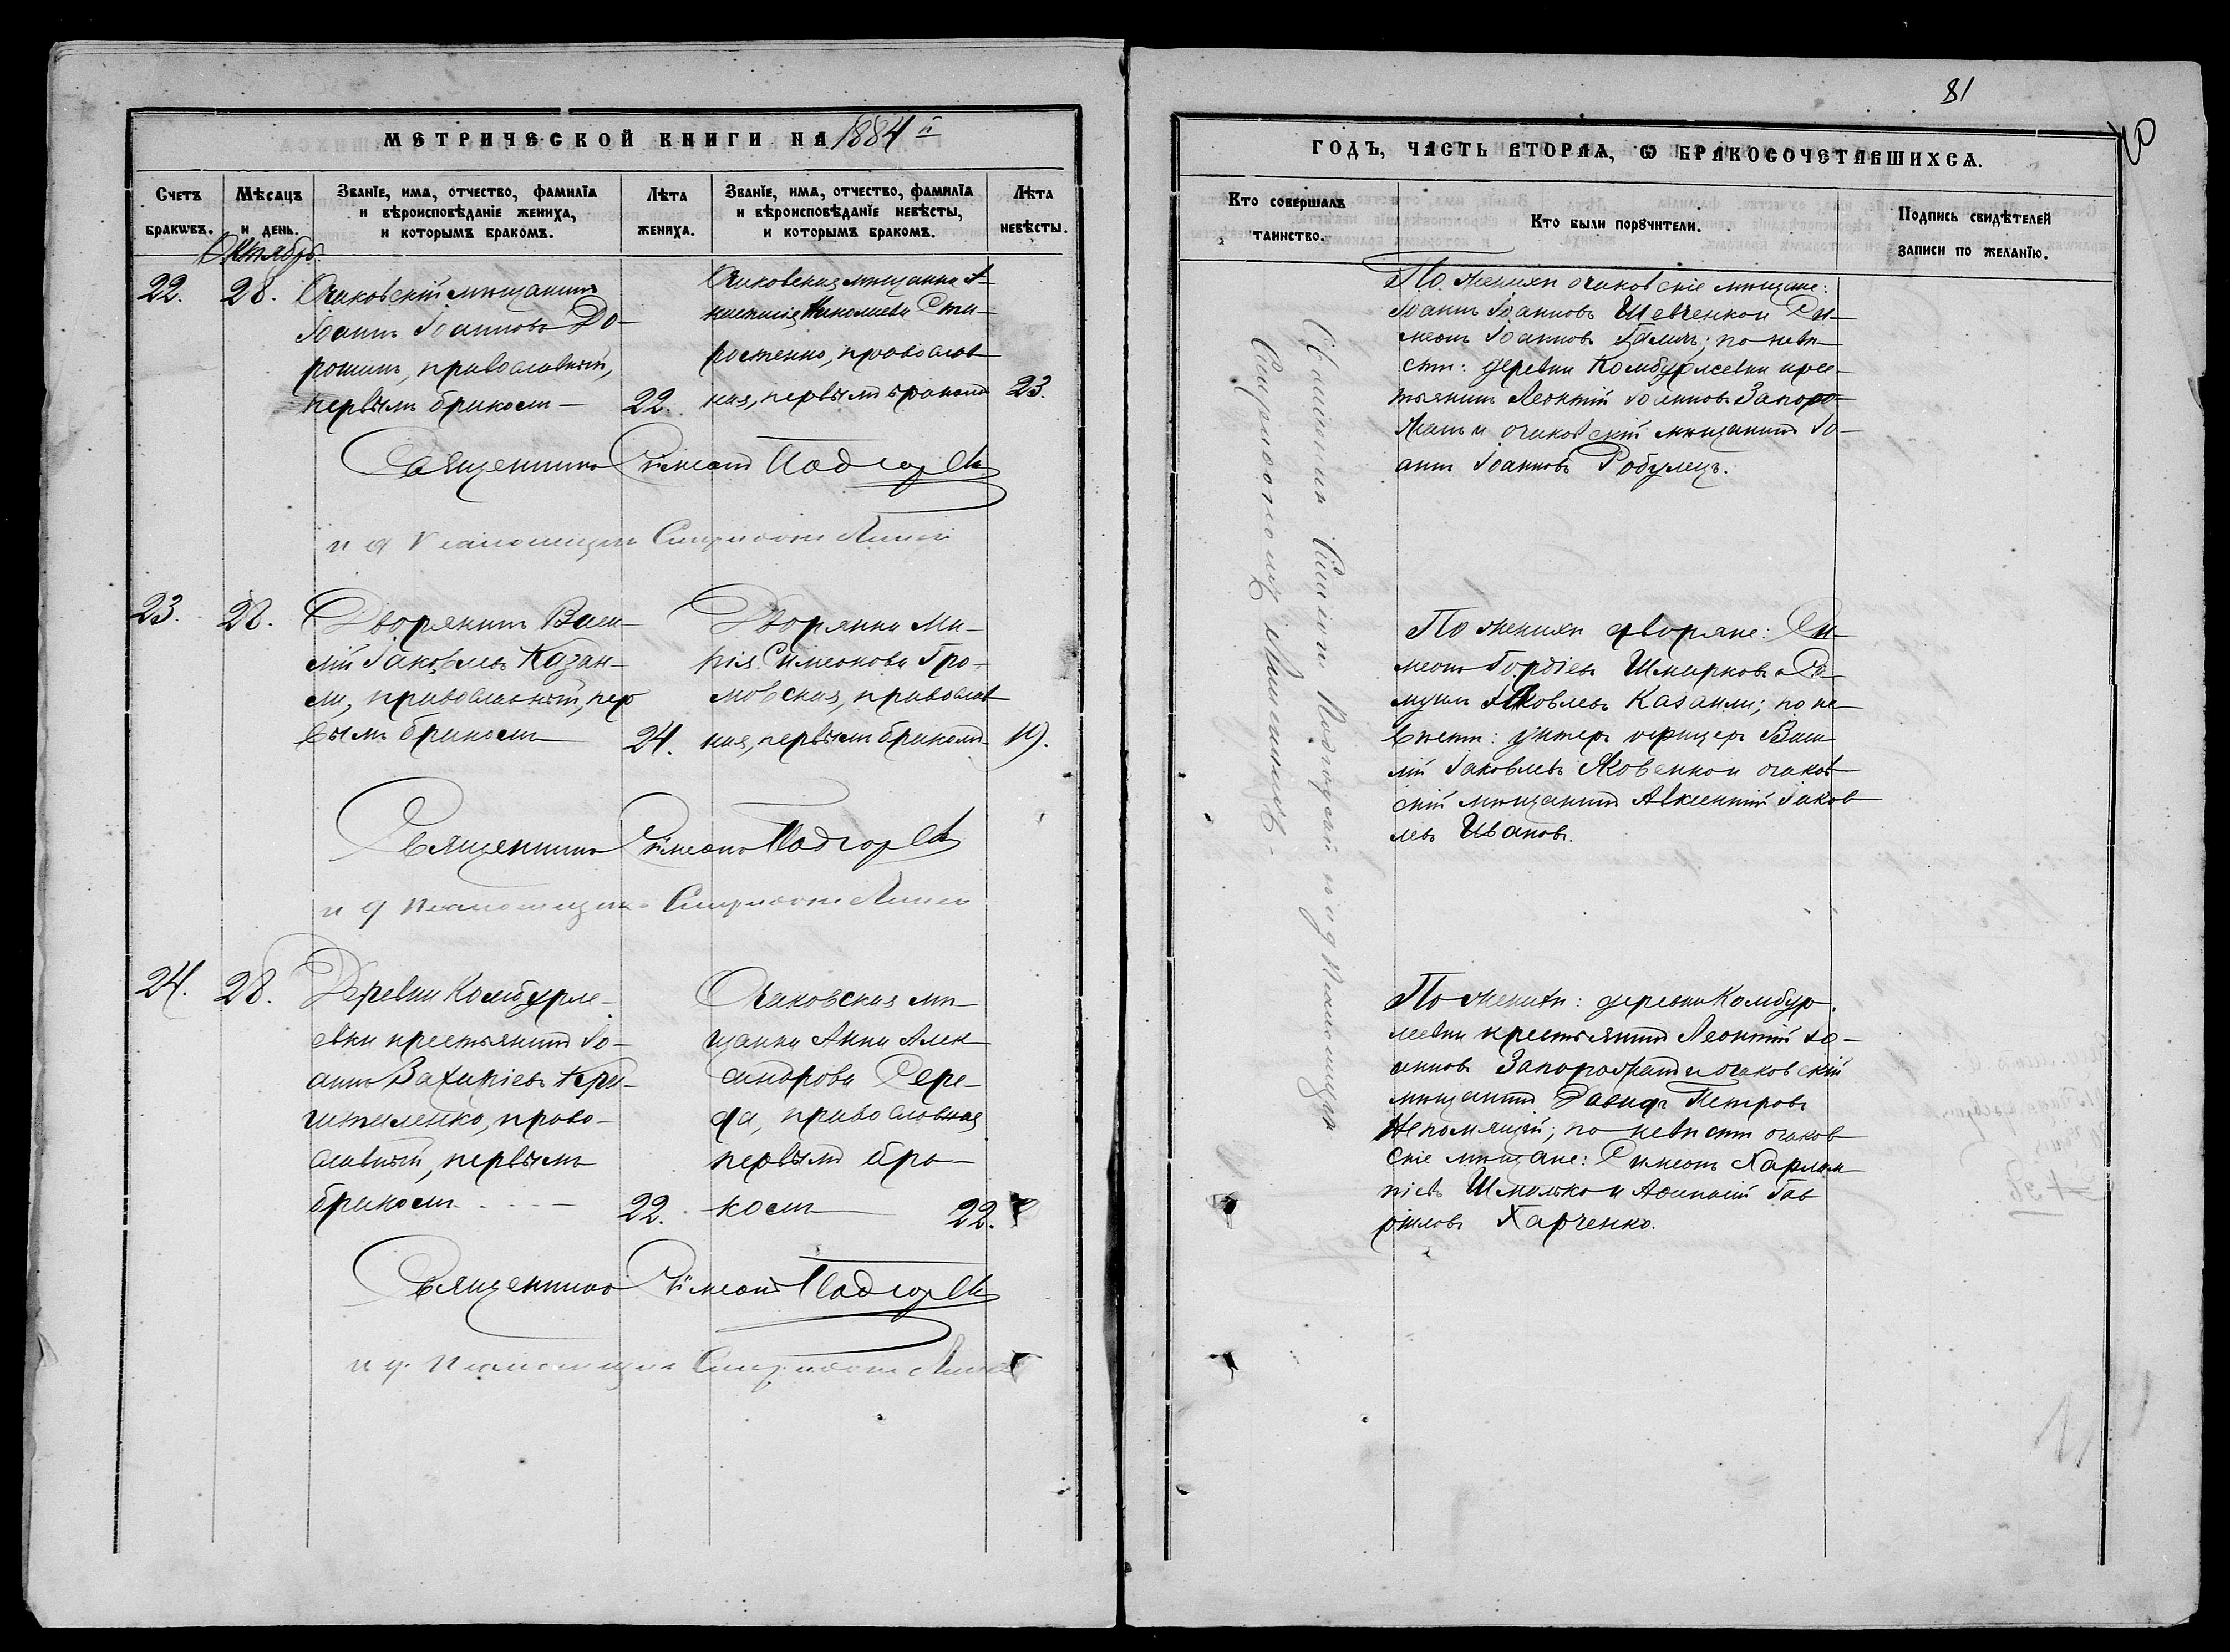 МЕТРИЧЕСКОЙ КНИГИ НА 1884 й
Счетъ браковъ.
Мѣсяцъ и день.
Званїе, имя, отчество, фамилїя
и вѣроисповѣданїе жениха,
и которымъ бракомъ.
Лѣта жениха.
Званїе, имя, отчество, фамилїя
и вѣроисповѣданїе невѣсты,
и которымъ бракомъ.
Лѣта невѣсты.
Октябрь.
22.
28.
Очаковскій мѣщанинъ
Іоаннъ Іоанновъ До-
рошинъ, православный,
первымъ бракомъ
22.
Очаковская мѣщанка А-
настасія Николаева Ста-
ростенко, православ
ная, первымъ бракомъ
23.
Священникъ Симеонъ Подгорск
и д Псаломщика Спиридонъ
23.
28.
Дворянинъ Васи-
лій Іаковлевъ Казан-
ли, православный, пер
вымъ бракомъ
24.
Дворянка Ма-
рія Симеонова Гро-
мовская, православ
ная, первымъ бракомъ
19.
Священникъ Симеонъ Подгорск
и д Псаломщика Спиридонъ
24.
28.
Деревни Комбурле-
евки крестьянинъ Іо-
аннъ Захаріевъ Кри-
шталенко, право-
славный, первымъ
бракомъ
22.
Очаковская мѣ-
щанка Анна Алек
сандрова Сере-
да, православная
первымъ бра-
комъ
22.
Священникъ Симеонъ Подгорск
и д. Псаломщика Спиридонъ
81
40
ГОДЪ, ЧАСТЬ ВТОРАЯ, Ѡ БРАКОСОЧЕТАВШИХСЯ.
Кто совершалъ таинство.
Кто были порѹчители.
Подпись свидѣтелей
записи по желанїю.
Священникъ Симеонъ Подгорскій и д Псаломщика
Спиридономъ
По женихѣ очаковскіе мѣщане:
Іоаннъ Іоанновъ Шевченко и Си-
меонъ Іоанновъ Галичъ; по невѣ-
стѣ: деревни Комбурлеевки крес-
тьянинъ Леонтій Іоанновъ Запоро-
жанъ и очаковскій мѣщанинъ Іо-
аннъ Іоанновъ Робулецъ.
По женихѣ дворяне: Си-
меонъ Гордіевъ Шмарковъ и Ро-
муилъ Яковлевъ Казанли; по не-
вѣстѣ: унтеръ офицеръ Васи
лій Іаковлевъ Яковенко и очаков
скій мѣщанинъ Авксентій Іаков
левъ Ивановъ.
По женихѣ: деревни Комбур
леевки крестьянинъ Леонтій Іо-
анновъ Запорожанъ и очаковскій
мѣщанинъ Давидъ Петровъ
Непомящій; по невѣстѣ очаков
скіе мѣщане: Симеонъ Харлам
піевъ Шмалько и Афанасій Гав
риловъ Харченко.